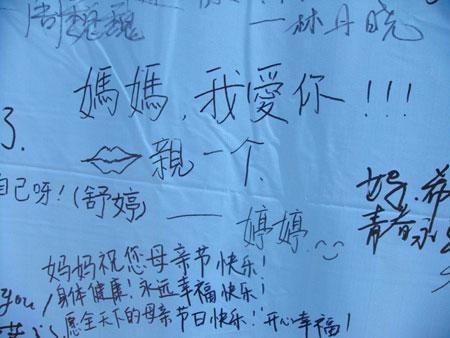 —林丹晓
媽媽,我愛你!!!
了.
親一个.
自己呀!(舒婷)
——婷婷.
妈妈祝您母亲节快乐!
you/身体健康!永远幸福快乐!
愿全天下的母亲节日快乐!开心幸福!
希
青春永